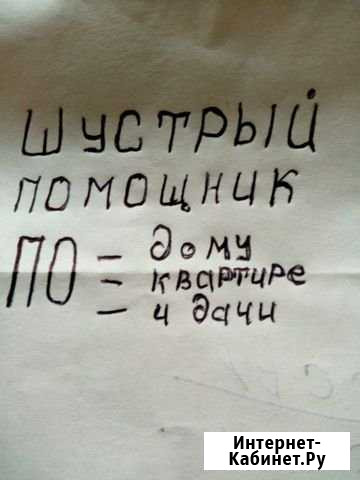 ШУСТРЫЙ
ПОМОЩНИК
ПО – дому
– квартире
– и дачи
Интернет-
Кабинет.Ру